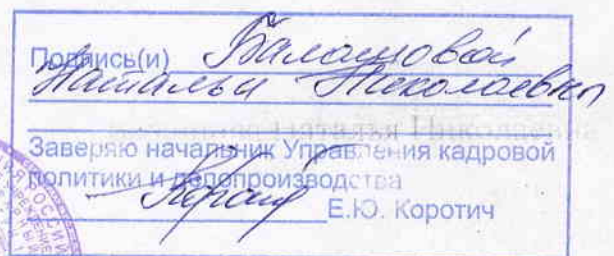 Подпись(и) Балашовой
Натальи Николаевны
Заверяю начальник Управления кадровой
политики и делопроизводства
Е.Ю. Коротич